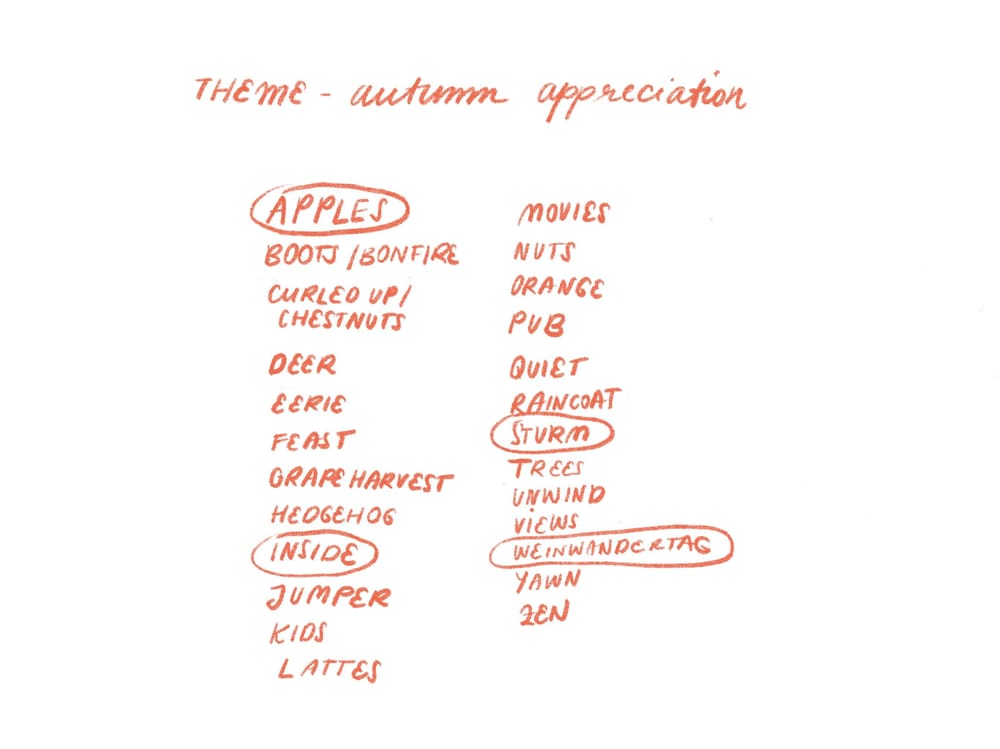 THEME - autumn appreciation
APPLES
BOOTS / BONFIRE
CURLED UP /
CHESTNUTS
DEER
EERIE
FEAST
GRAPE HARVEST
HEDGEHOG
INSIDE
JUMPER
KIDS
LATTES
MOVIES
NUTS
ORANGE
PUB
QUIET
RAINCOAT
STURM
TREES
UNWIND
VIEWS
WEINWANDERTAG
YAWN
ZEN